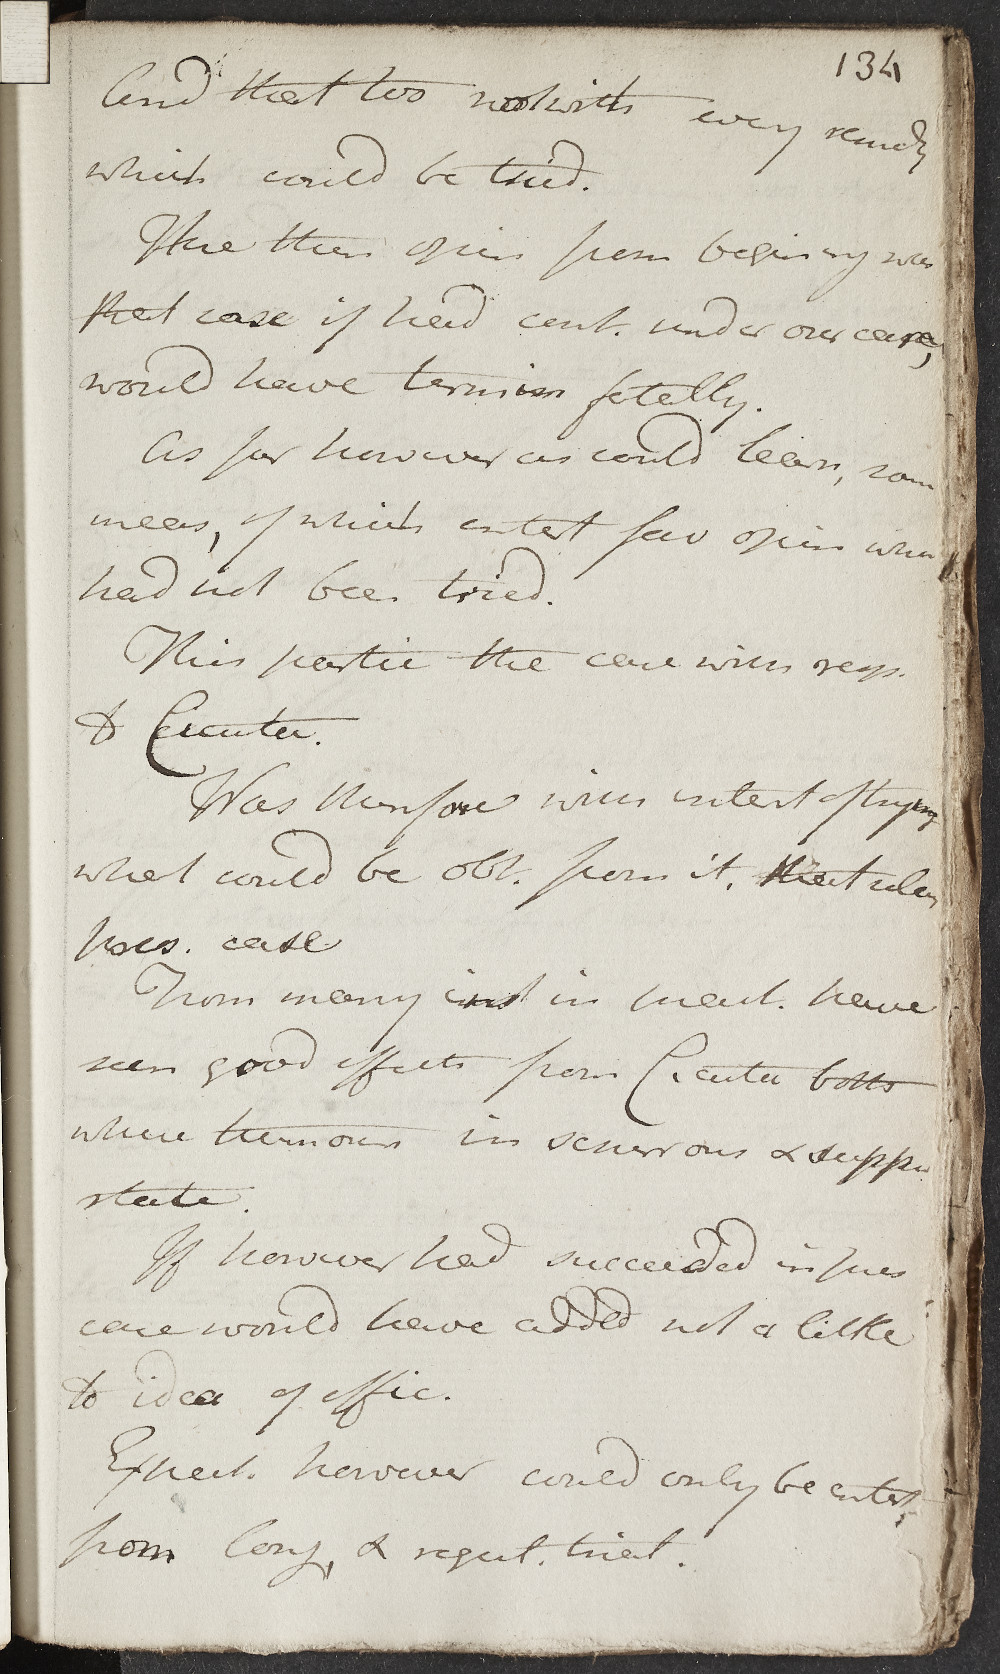 134
And that too notwith every remedy
which could be tried.
Hue then opin from beginning was
that case if had cont. under our care,
would have termin fatally.
As far however as could learn, some
meas, of which entert fav opin when
had not been tried.
This partic the case with resp.
to Cicuta.
Was therefore with intent of trying
what could be obt. from it, that when
pres. case
From many inst in pract. have
seen good effects from Cicuta both
where tumours in scirrous & suppu
state.
If however had succeeded in pres
case would have added not a little
to idea of effic.
Expect. however could only be entert
from long, & regul. trial.